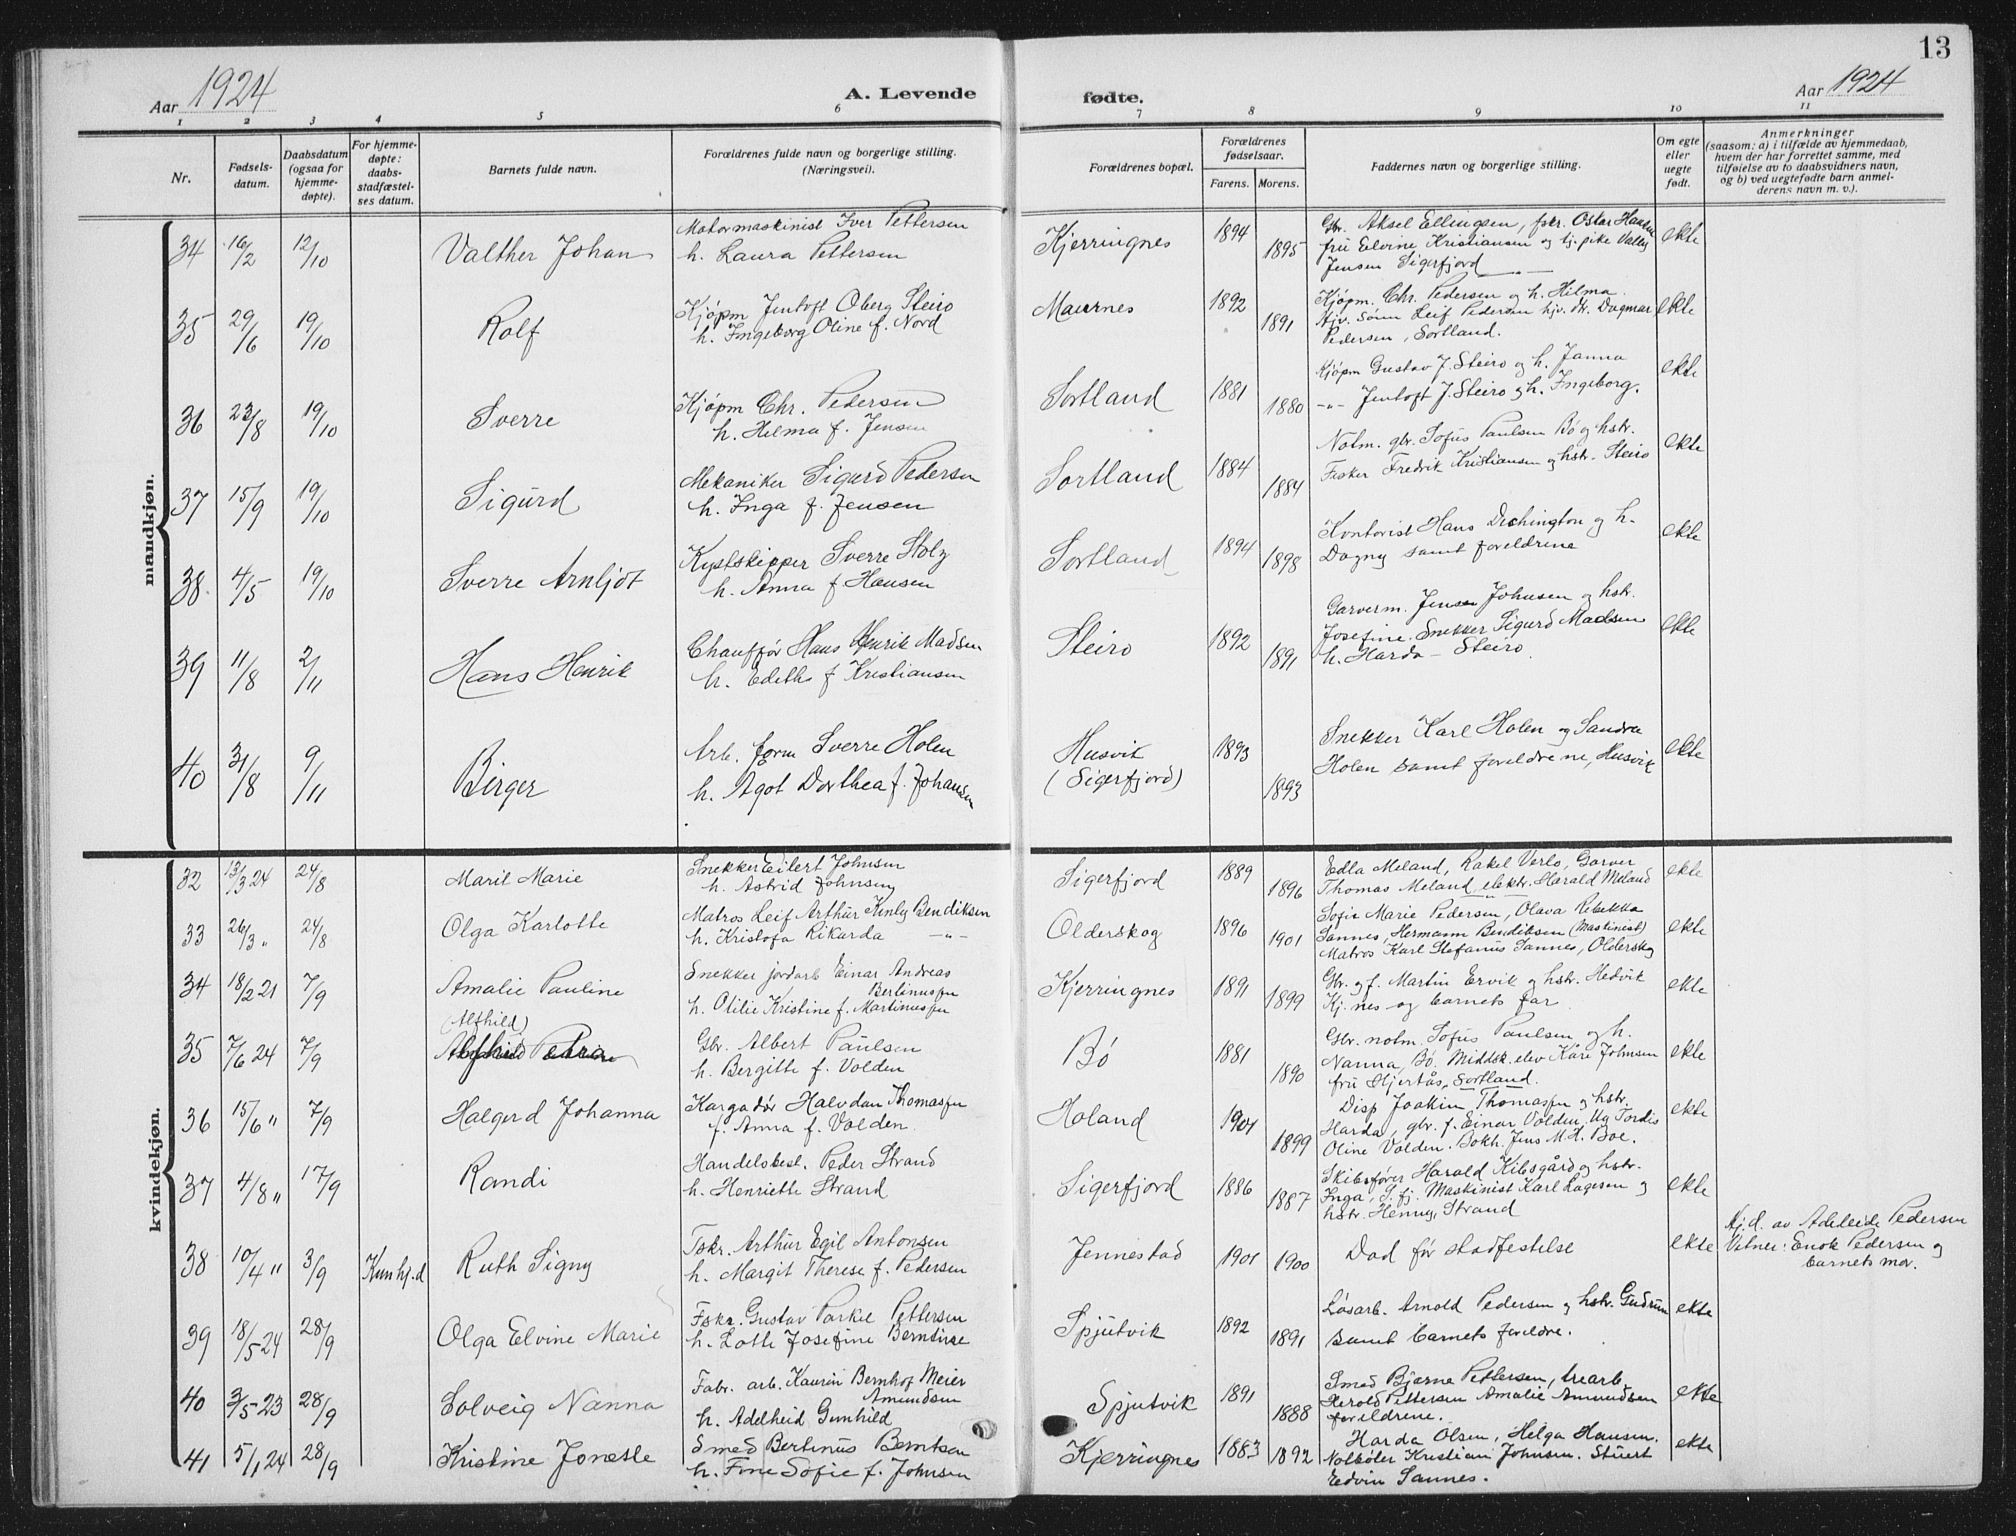 13
Aar 1924
A. Levende
fødte.
Aar 1924
1 2 3 4 5 6 7 8 9 10 11
Nr.
Fødsels-
datum.
Daabsdatum
(ogsaa for
hjemme-
døpte).
For hjemme-
døpte:
daabs-
stadfæstel-
ses datum.
Barnets fulde navn.
Forældrenes fulde navn og borgerlige stilling.
(Næringsvei).
Forældrenes bopæl.
Forældrenes
fødselsaar.
Farens. Morens.
Faddernes navn og borgerlige stilling.
Om egte
eller
uegte
født.
Anmerkninger
(saasom: a) i tilfælde av hjemmedaab,
hvem der har forrettet samme, med
tilføielse av to daabsvidners navn,
og b) ved uegtefødte barn anmel-
derens navn m. v.).
mandkjøn.
34 16/2 12/10 Valther Johan
Motormaskinist Iver Pettersen
h. Laura Pettersen
Kjerringnes 1894 1895
Gbr. Aksel Ellingsen, fskr. Oskar Hansen
fru Elvine Kristiansen og tj. pike Valby
Jensen Sigerfjord
ekte
35 29/6 19/10 Rolf
Kjøpm Jentoft Oberg Steiro
h. Ingeborg Oline f. Nord
Maurnes 1892 1891
Kjøpm. Chr. Pedersen og h. Hilma.
Hjv. sønn Leif Pedersen hjv. dt. Dagmar
Pedersen, Sortland.
ekte
36 23/8 19/10 Sverre
Kjøpm Chr. Pedersen
h. Hilma f. Jensen
Sortland 1881 1880
Kjøpm Gustav J. Steiro og h. Janna
-"- Jentoft J. Steiro og h. Ingeborg.
ekte
37 15/9 19/10 Sigurd
Mekaniker Sigurd Pedersen
h. Inga f. Jensen
Sortland 1884 1884
Notm. gbr. Sofus Paulsen Bø og hstr.
Fisker Fredrik Kristiansen og hstr. Steiro
ekte
38. 4/5 19/10 Sverre Arnljot
Kystskipper Sverre Stolz
h. Anna f Hansen
Sortland 1894 1898
Kontorist Hans Dichington og h.
Dagny samt foreldrene
ekte
39 11/8 2/11 Hans Henrik
Chauffør Hans Henrik Madsen
h. Edith f Kristiansen
Steiro 1892 1891
Garverm. Jens Johnsen og hstr.
Josefine. Snekker Sigurd Madsen
h. Harda - Steiro.
ekte
40 31/8 9/11 Birger
Arb. form Sverre Holen
h. Agot Dorthea f. Johansen
Husvik
(Sigerfjord)
1893 1893
Snekker Karl Holen og Sandra
Holen samt foreldrene, Husvik
ekte
kvindekjøn.
32 13/3 24 24/8 Marit Marie
Snekker Eilert Johnsen
h. Astrid Johnsen
Sigerfjord 1889 1896
Edla Meland, Rakel Verlo, Garver
Thomas Meland elektr. Harald Meland
ekte
33 26/3 " 24/8 Olga Karlotte
Matros Leif Arthur Kinly Bendiksen
h. Kristofa Rikarda -"-
Olderskog 1896 1901
Sofie Marie Pedersen, Olava Rebekka
Sannes, Hermann Bendiksen (Maskinist)
Matros Karl Stefanus Sannes, Olderskog
ekte
34 18/2 21 7/9 Amalie Pauline
Snekker jordarb Einar Andreas
Bertinussen
h. Otilie Kristine f. Martinussen
Kjerringnes 1891 1899
Gbr. og f. Martin Ervik og hstr. Hedvik
Kj.nes og barnets far
ekte
35 7/6 24 7/9 (Alfhild)
Gbr. Albert Paulsen
h. Bergitte f. Volden
Bø 1881 1890
Gbr. notm. Sofus Paulsen og h.
Nanna, Bø. Middsk. elev Kåre Johnsen
fru Hjertås, Sortland.
ekte
36 15/6 " 7/9 Halgerd Johanna
Kargadør Halvdan Thomassen
f. Anna f. Volden.
Holand 1901 1899
Disp Joakim Thomassen og hstr.
Harda, gbr. f. Einar Volden, Ug Tordis
Oline Volden. Bokh. Jens M. A. Boe.
ekte
37 4/8 " 17/9 Randi
Handelsbest. Peder Strand
h. Henriette Strand
Sigerfjord 1886 1887
Skibsfører Harald Kibsgård og hstr.
Inga, S.fj. Maskinist Karl Lagesen og
hstr. Henny, Strand
ekte
38 10/4 " 3/9 Kun hj.d Ruth Signy
Fskr. Arthur Egil Antonsen
h. Margit Therese f. Pedersen
Jennestad 1901 1900
Død før stadfestelse
ekte
Hj.d. av Adeleide Pedersen
Vitner: Enok Pedersen og
barnets mor.
39 18/5 24 28/9 Olga Elvine Marie
Fskr. Gustav Parkel Pettersen
h. Lotte Josefine Berntine
Spjutvik 1892 1891
Løsarb. Arnold Pedersen og hstr. Gudrun
samt barnets foreldre.
ekte
40 3/5 23 28/9 Solveig Nanna
Fabr. arb. Kaurin Bernhof Meier
Amundsen
h. Adelheid Gunhild
Spjutvik 1891 1888
Smed Bjarne Pettersen, trearb
Herold Pettersen Amalie Amundsen
foreldrene.
ekte
41 5/1 24 28/9 Kristine Joneste
Smed Bertinus Berntsen
h. Fine Sofie f. Johnsen
Kjerringnes 1883 1892
Harda Olsen, Helga Hansen.
Notbøter Kristian Johnsen. Stuert
Edvin Sannes.
ekte